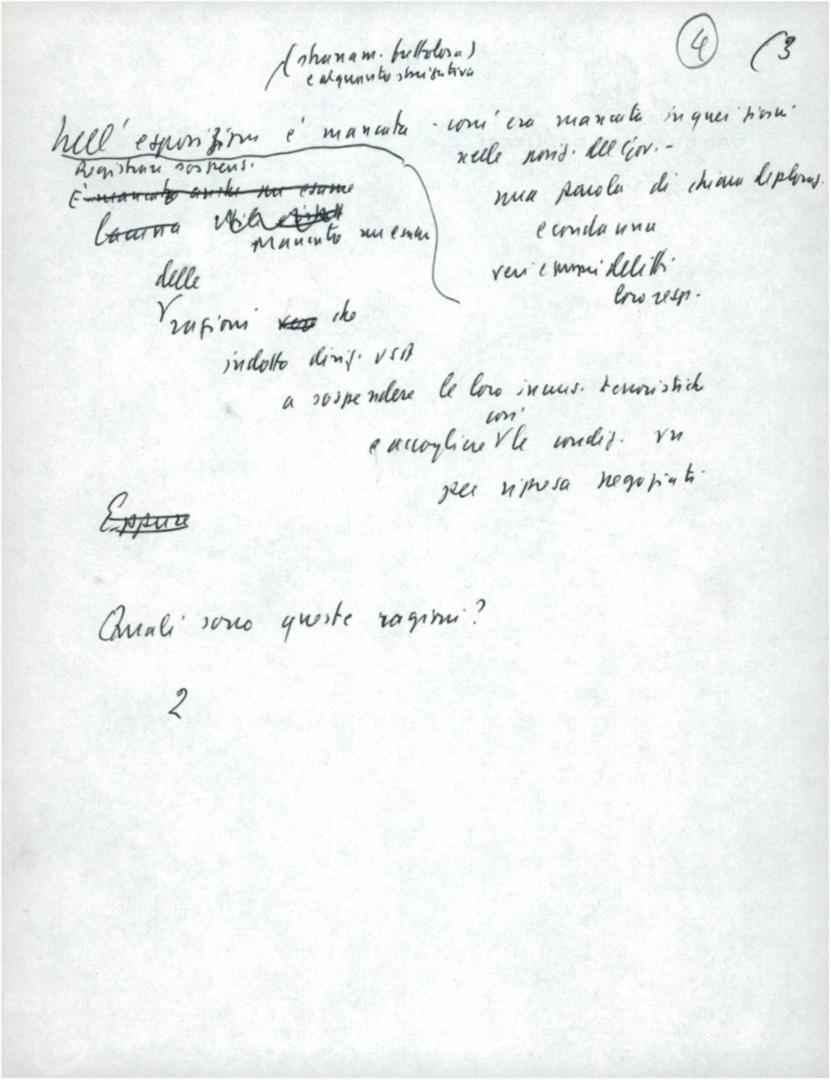 4 (3
(stranam. frettolosa)
e alquanto sbrigativa
Nell' esposizione è mancata - com' era mancata in quei giorni
nelle posiz. del Gov. -
Registrare sospens.
una parola di chiara deploraz.
È mancato anche un esame
e condanna
lacuna
Mancato un esame
veri e propri delitti
delle
loro resp.
ragioni che
indotto dirig. USA
a sospendere le loro incurs. terroristiche
così
e accogliere le condiz. VN
per ripresa negoziati
Eppure
Quali sono queste ragioni?
2